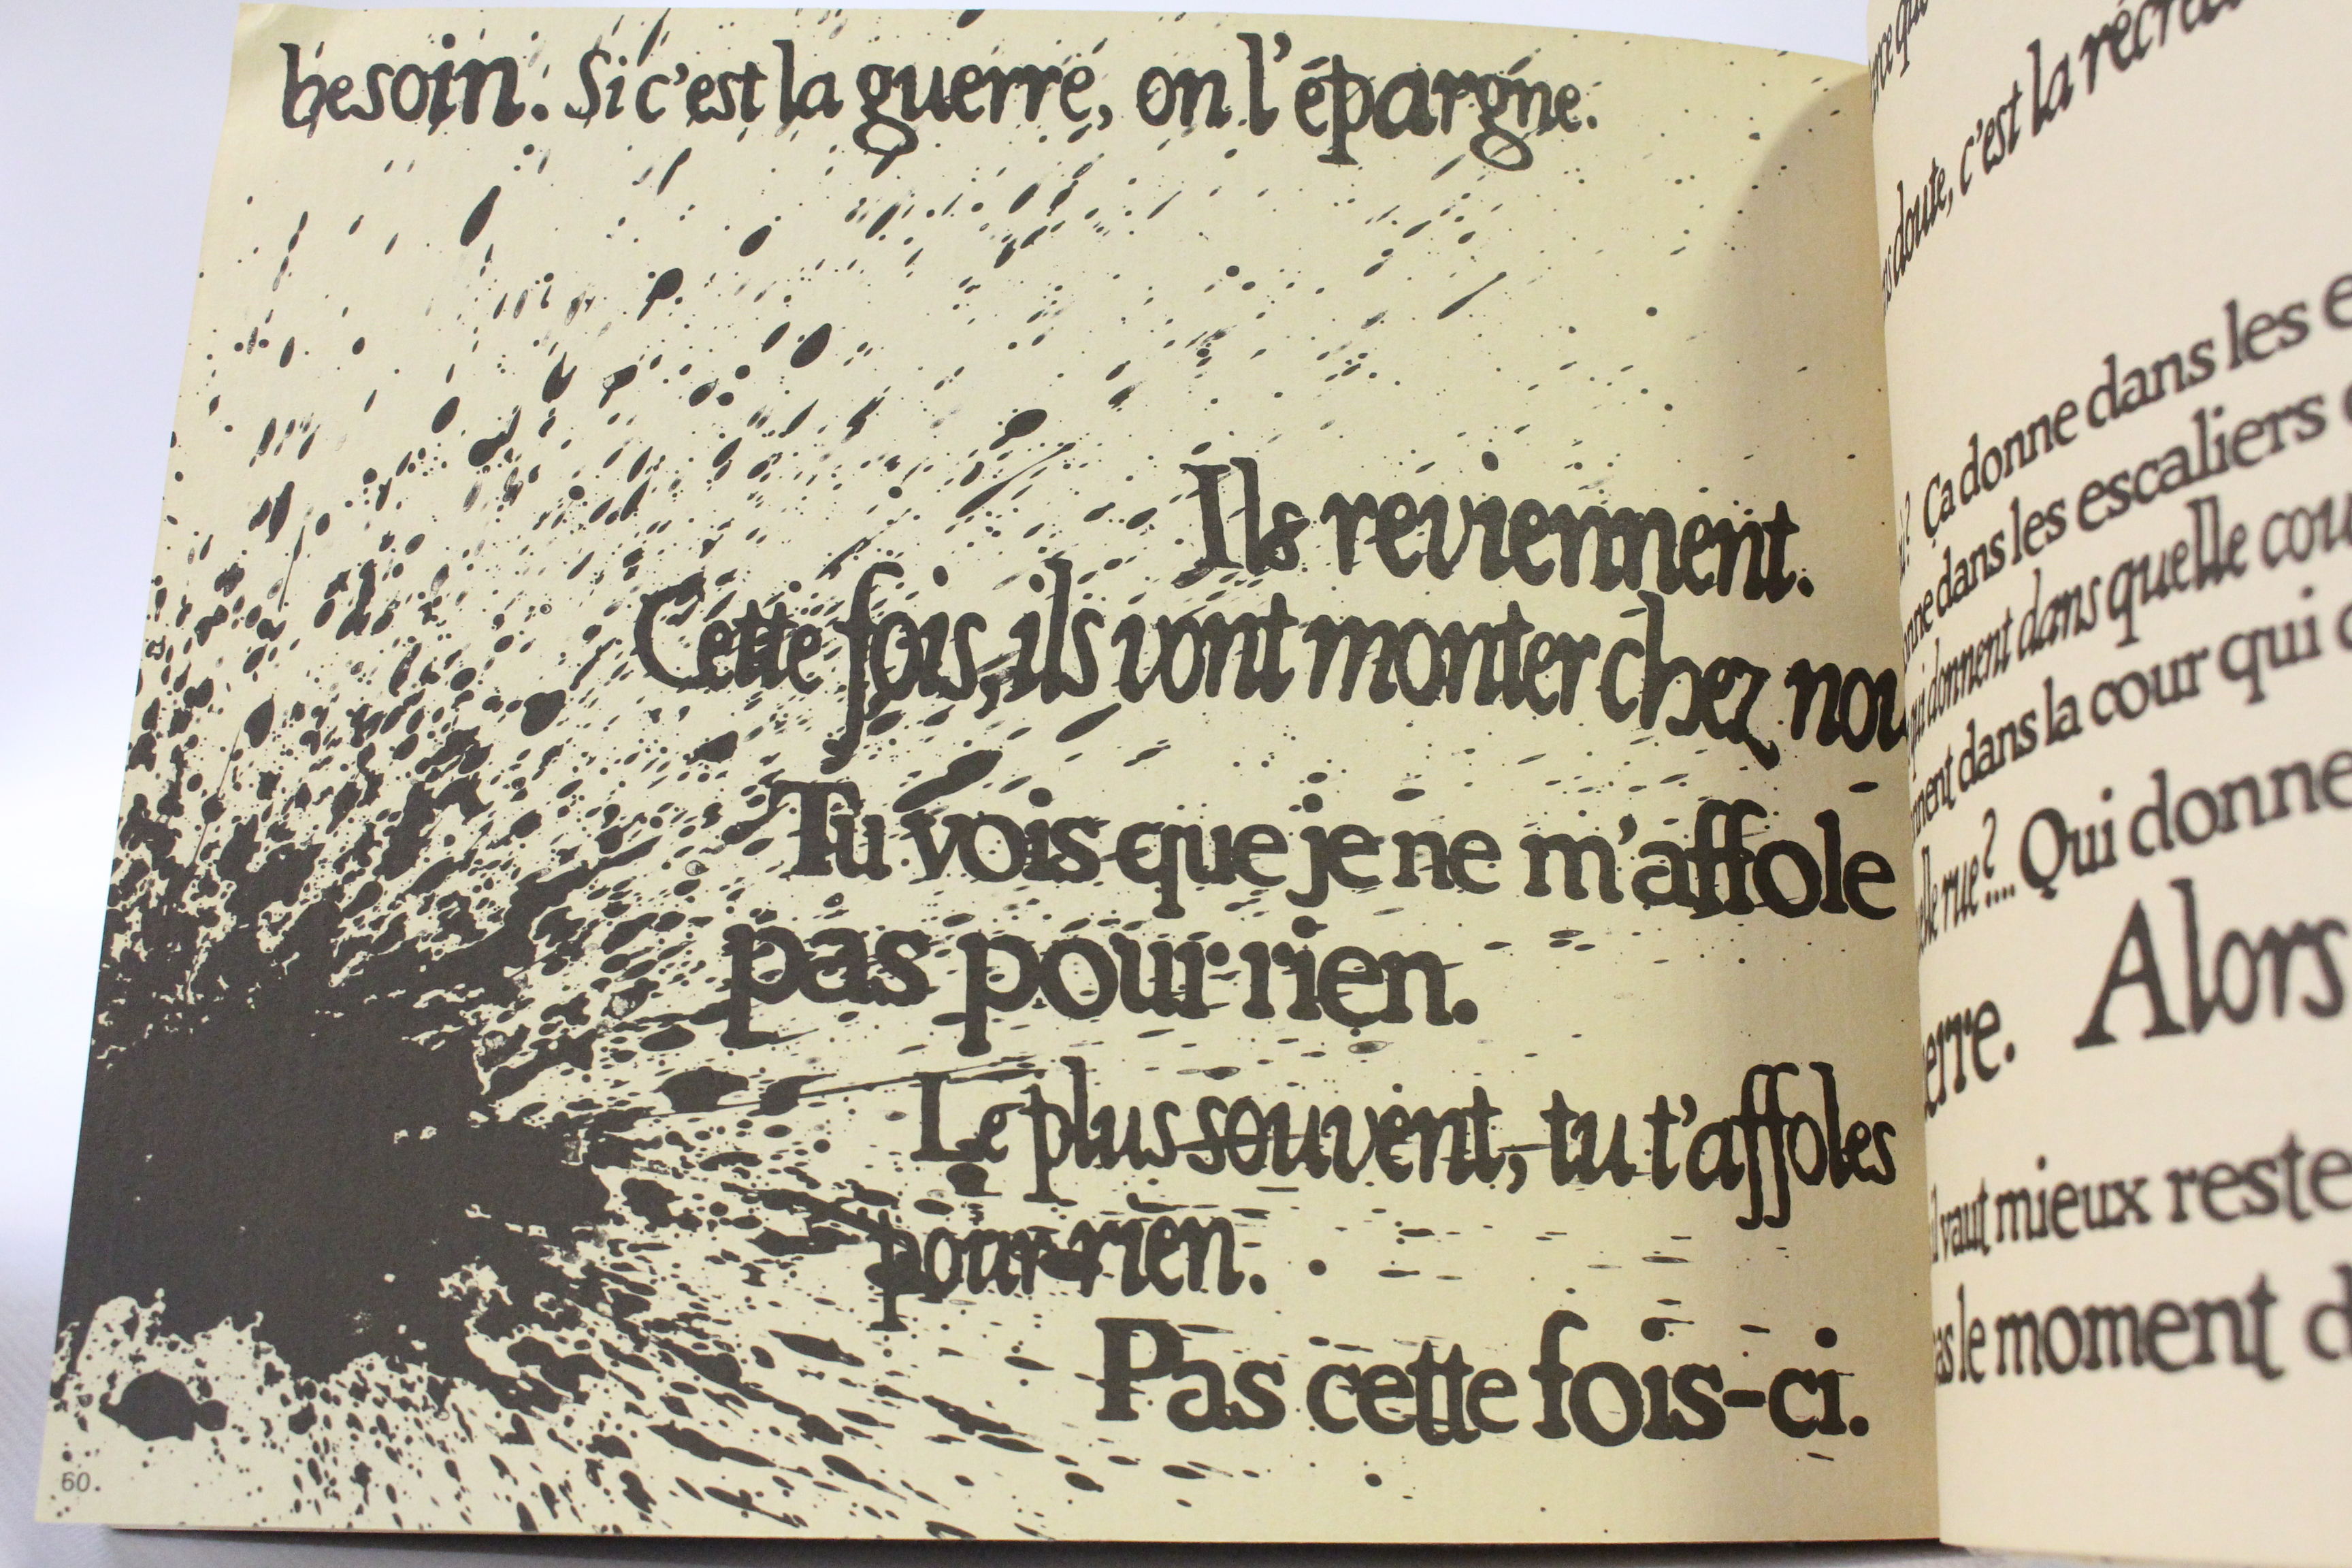 besoin. Si c'est la guerre, on l'épargne.
Ils reviennent.
Cette fois, ils vont monter chez
Tu vois que je ne m'affole
pas pour rien.
Le plus souvent, tu t'affoles
pour rien.
Pas cette fois-ci.
60.
doute, c'est la
Ça donne dans les
dans les escaliers
donnent dans quelle
dans la cour qui
rue?... Qui donne
Alors
vaut mieux
le moment